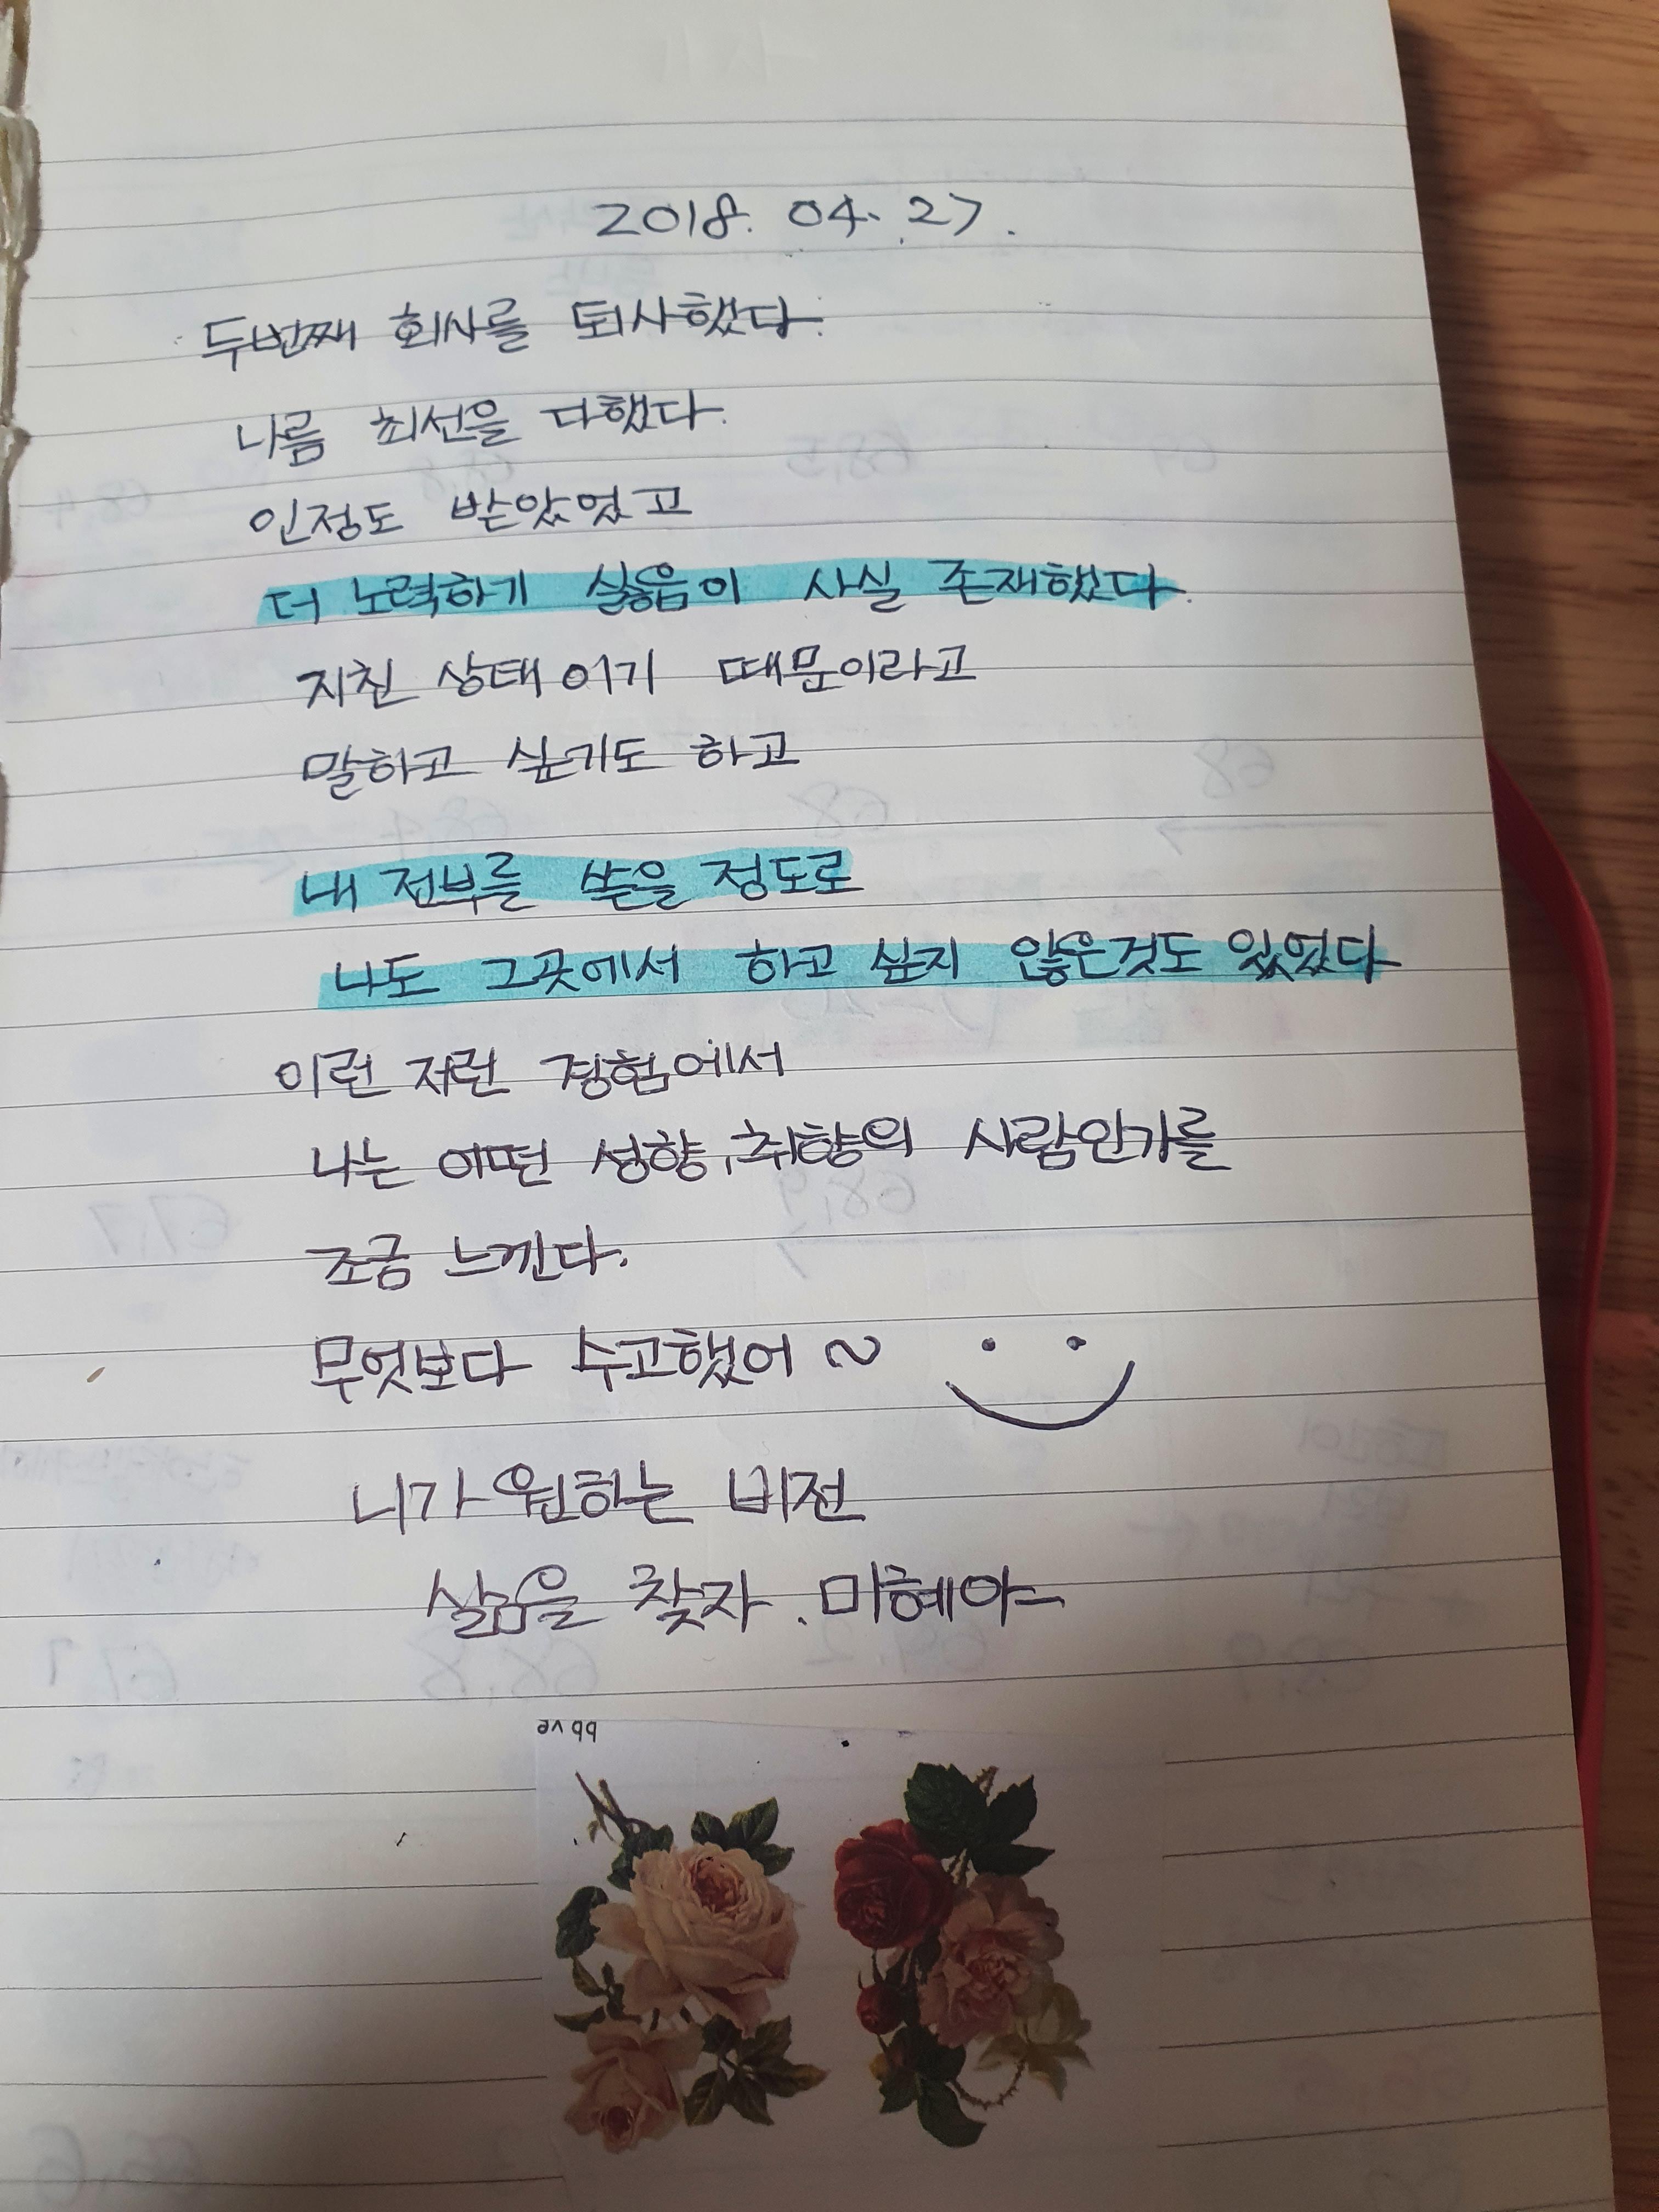 2018. 04. 27.
두번째 회사를 퇴사했다.
나름 최선을 다했다.
인정도 받았었고
더 노력하기 싫음이 사실 존재했다.
지친 상태이기 때문이라고
말하고 싶기도 하고
내 전부를 쏟을 정도로
나도 그곳에서 하고 싶지 않은것도 있었다
이런 저런 경험에서
나는 어떤 성향, 취향의 사람인가를
조금 느낀다.
무엇보다 수고했어~
니가 원하는 비전
삶을 찾자. 미혜야~
bb ve